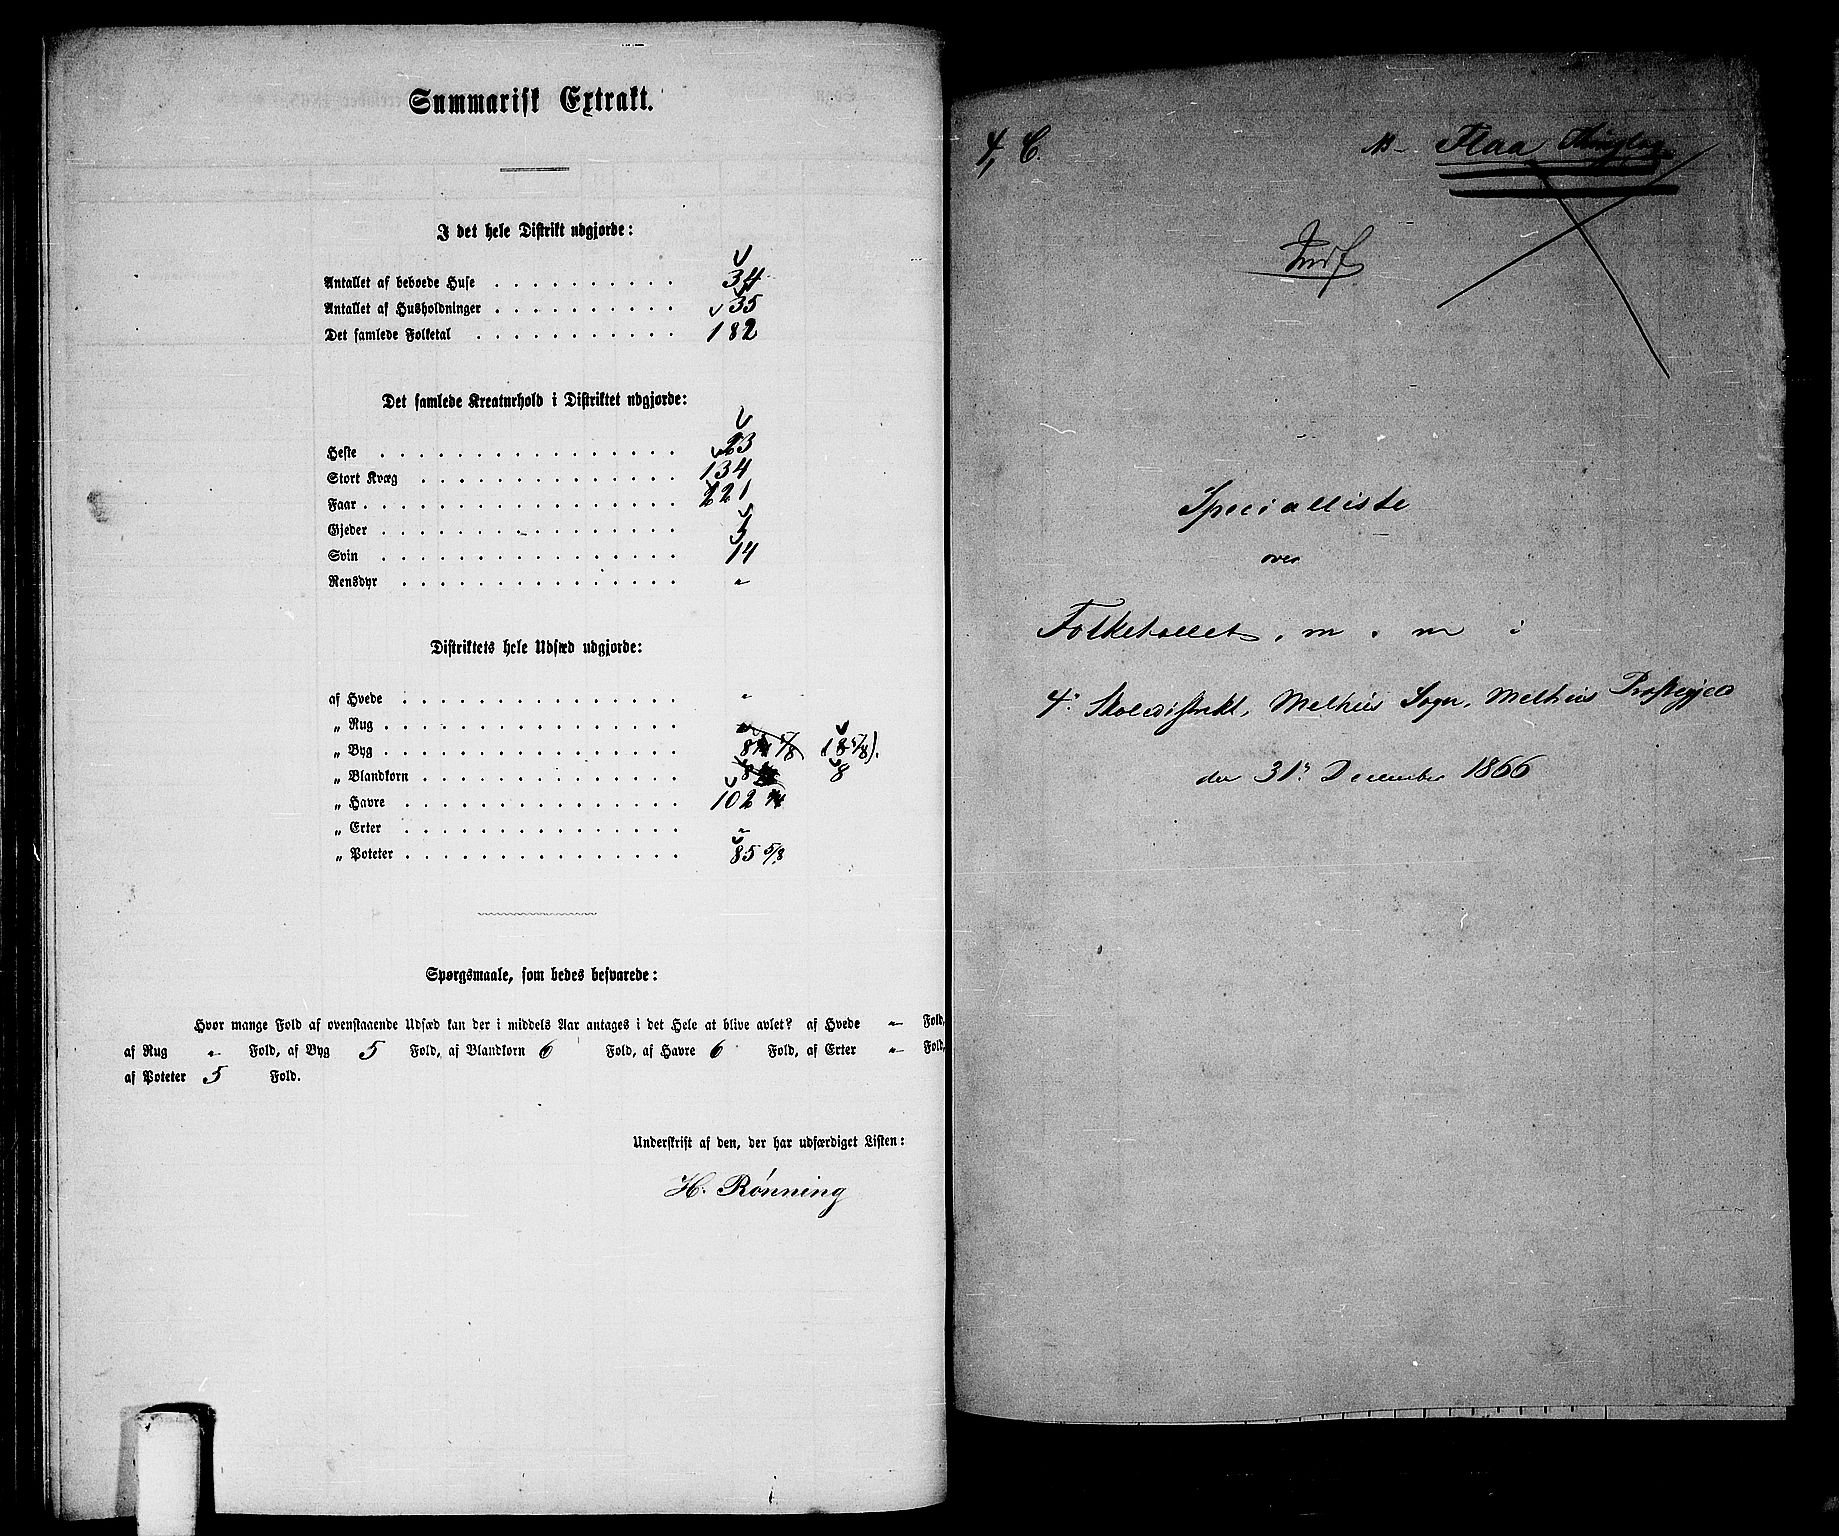 Summarisk Extrakt.
I det hele Distrikt udgjorde:
Antallet af beboede Huse 34
Antallet af Husholdninger 35
Det samlede Folketal 182
Det samlede Kreaturhold i Distriktet udgjorde:
Heste 23
Stort Kvæg 134
Faar 221
Gjeder
Svin 14
Rensdyr "
Distriktets hele Udsæd udgjorde:
af Hvede "
„ Rug "
„ Byg 5/8 (8 5/8).
„ Blandkorn 8
„ Havre 102
„ Erter "
„ Poteter 85 5/8
Spørgsmaale, som bedes besvarede:
Hvor mange Fold af ovenstaaende Udsæd kan der i middels Aar antages i det Hele at blive avlet? af Hvede " Fold,
af Rug " Fold, af Byg 5 Fold, af Blandkorn 6 Fold, af Havre 6 Fold, af Erter " Fold,
af Poteter 5 Fold.
Underskrift af den, der har udfærdiget Listen:
H. Rønning
4, C.
Flaa Thinglag
Specialliste
over
Folketallet, m. m i
4. Skoledistrikt, Melhus Sogn, Melhus Præstegjeld
den 31. December 1866